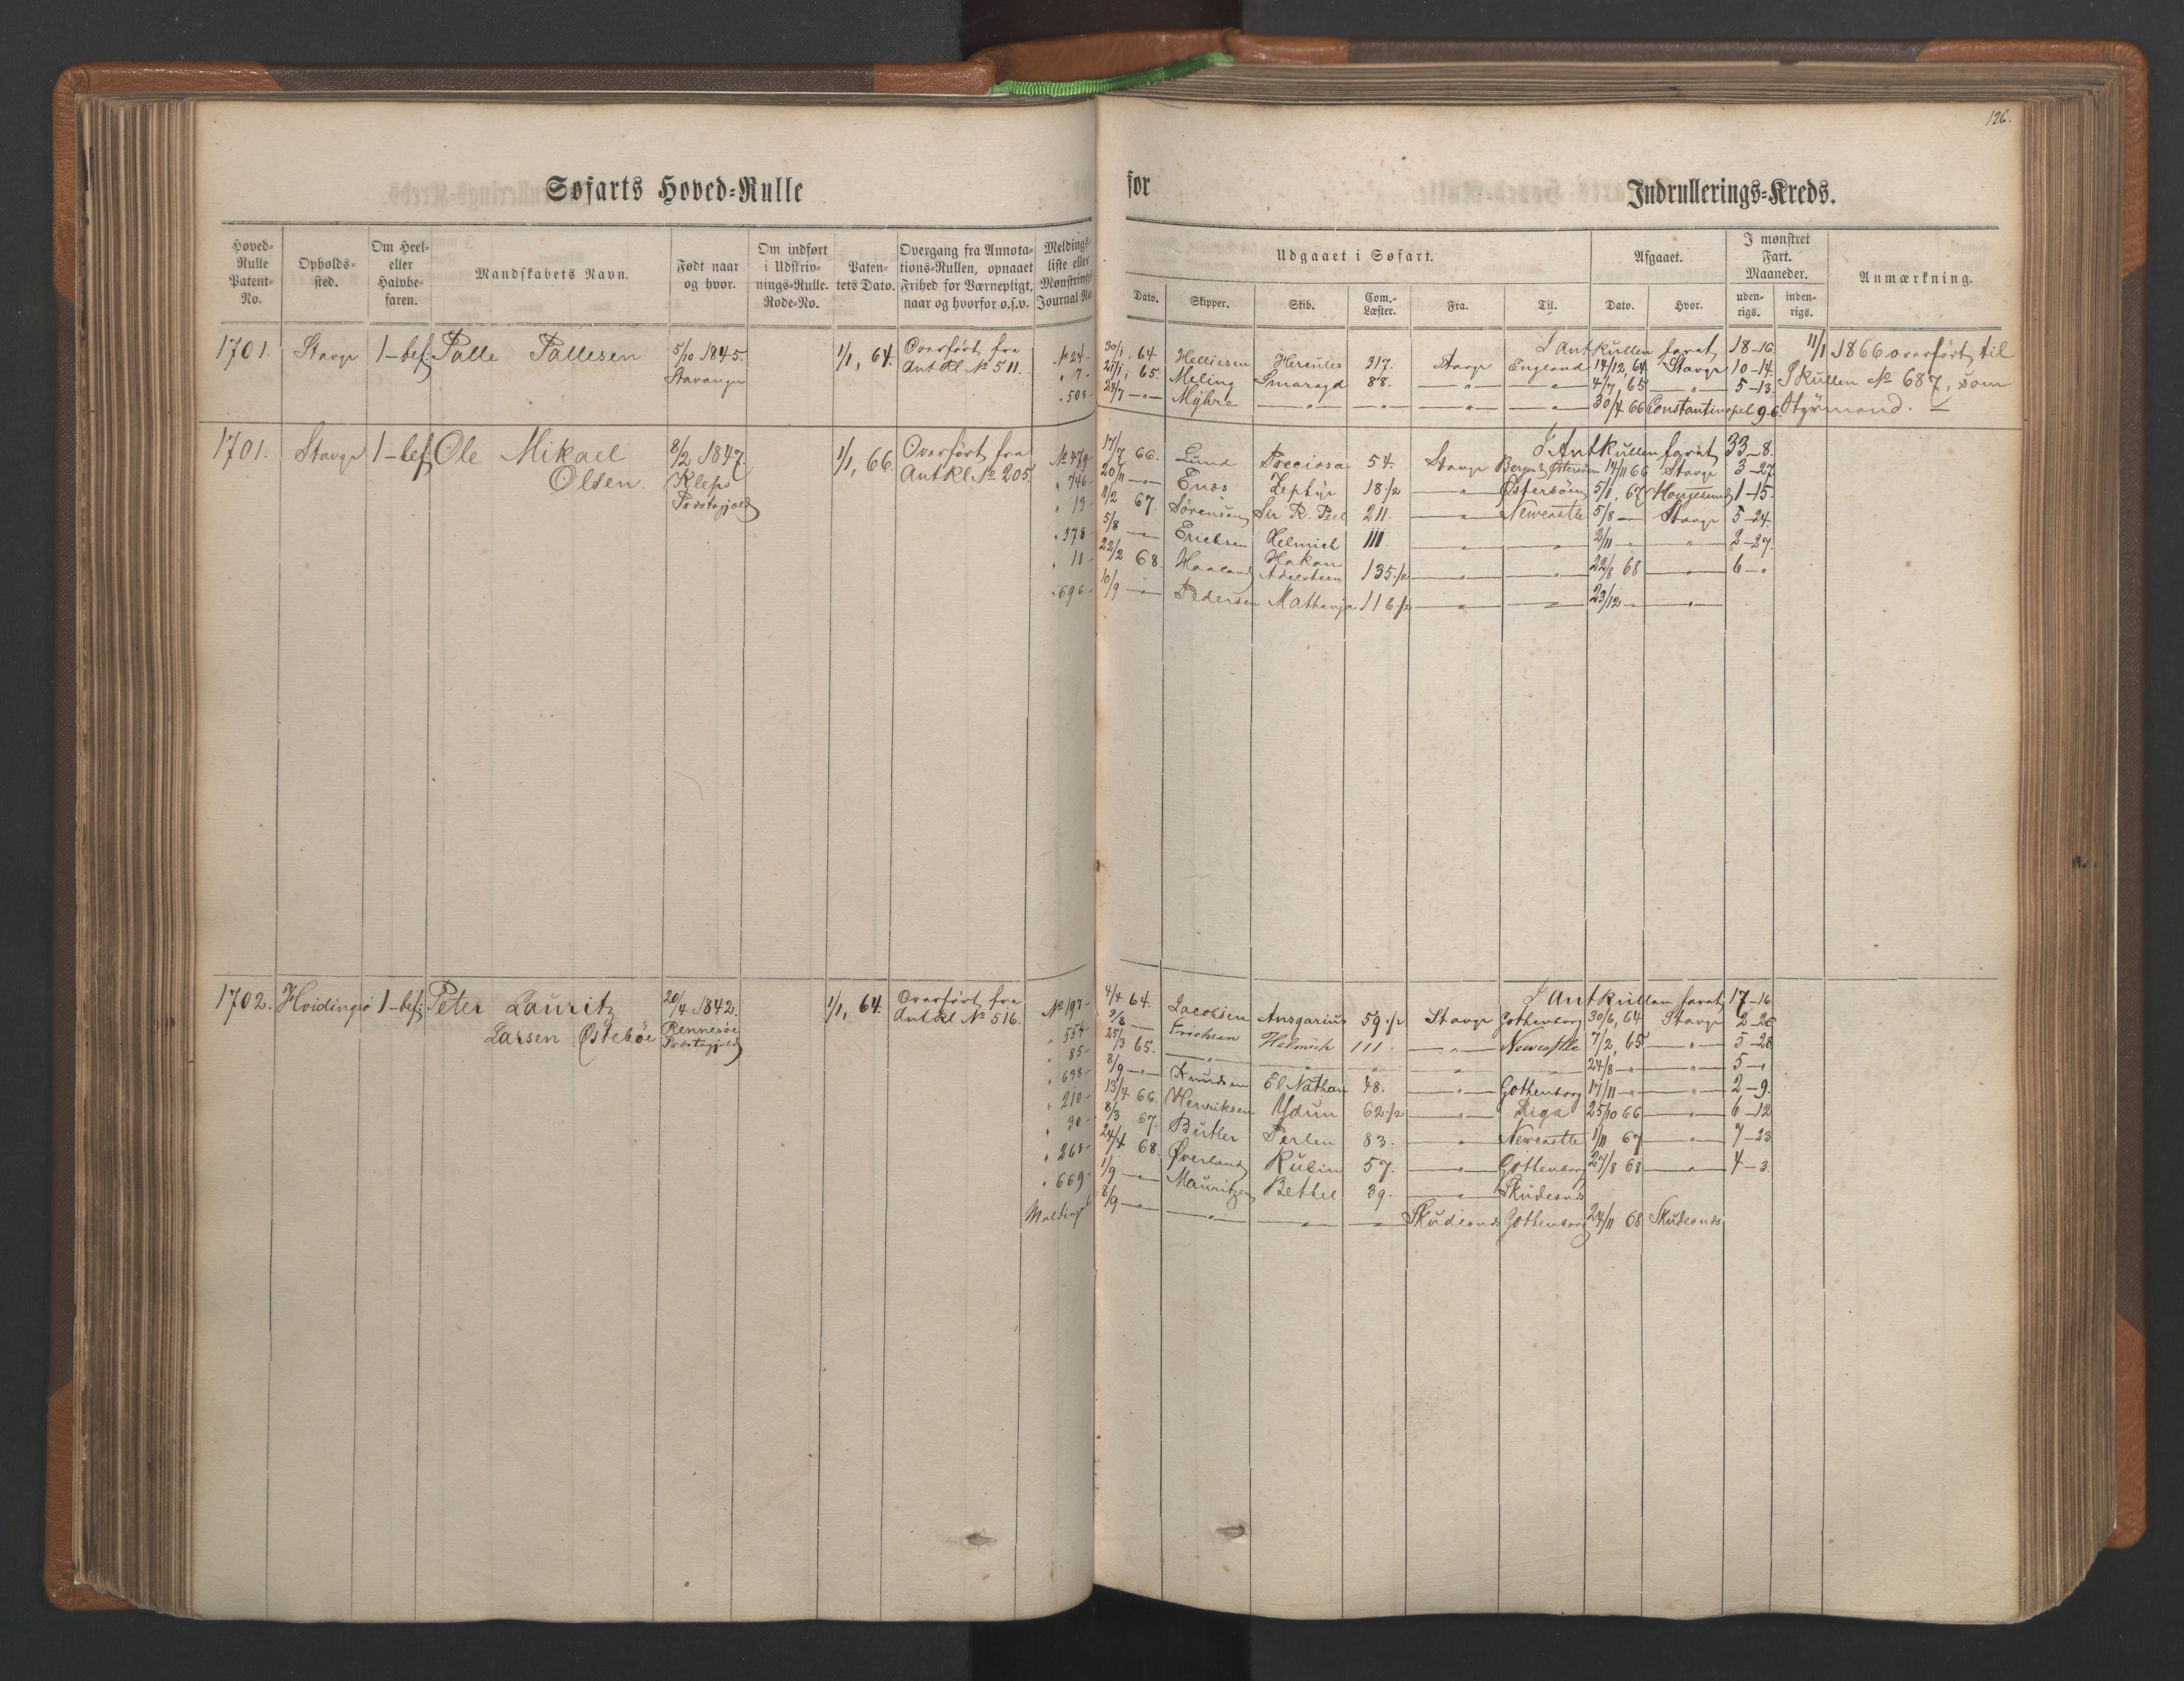 126.
Søfarts Hoved-Rulle
for
Indrullerings-Kreds.
Hoved-Rulle Patent-No.
Opholds-sted.
Om Heel- eller Halvbe-faren.
Mandskabets Navn.
Født naar og hvor.
Om indført i Udskriv-nings-Rulle. Rode-No.
Paten-tets Dato.
Overgang fra Annota-tions-Rullen, opnaaet Frihed for Værnepligt, naar og hvorfor o.s.v.
Meldings-liste eller Mønstrings-Journal No.
Udgaaet i Søfart.
Afgaaet.
I mønstret Fart. Maaneder.
Anmærkning.
Dato. Skipper. Skib. Com.-Læster. Fra. Til. Dato. Hvor. uden-rigs. inden-rigs.
1701. Stavgr 1-bef: Palle Pallesen 5/10 1845. 1/1, 64. Overført fra
Stavanger Ant Rl No 511.
I Antkullen farat 18-16. 11/1 1866 overført til
No 24- 30/1, 64 Helliesen Hercules 217. Stavgr England 14/12, 64 Stavgr 10-14. Skullen No 687, som
" 7- 27/1, 65. Meling Smaragd 88. -"- -"- 4/7, 65 -"- 5-13. Styrmand.
" 508- 24/7 -"- Myhre -"- -"- -"- -"- 30/4 66 Constantinopel 9-6.
1701. Stavgr 1-bef: Ole Mikael 8/2 1847 1/1, 66. Overført fra
Olsen. Klepp Ant Rl No 205.
Præstegjeld
I Antkullen farat 33-8.
No 479- 17/7 66. Lund Preciosa 54. Stavgr Bergen & Østersøen 14/11 66 Stavgr 3-27.
" 746- 20/11 -"- Enos Zephyr 18 1/2 -"- Østersøen 5/1, 67 Haugesund 1-15.
" 13- 11/2 67. Sørensen Sir R. Peel 211. -"- Newcastle 5/8 - Stavgr 5-24.
" 578- 5/8 -"- Erichsen Helmich 111. -"- -"- 2/11 -"- -"- 2-27.
" 18- 22/2 68. Haaland Hakon Adelsteen 135 1/2 -"- -"- 22/8 68 -"- 6-"
" 696- 10/9 -"- Pedersen Mathanja 116 1/2 -"- -"- 23/12 -"- -"-
1702. Hvidingsö 1-bef: Peter Lauritz 20/4 1842. 1/1, 64. Overført fra
Larsen Østebøe Rennesøe Ant Rl No 516.
Præstegjeld
I Antkullen farat 17-16
No 197- 4/4 64. Jacobsen Ansgarius 59 1/2 Stavgr Gothenborg 30/6, 64 Stavgr 2-26
" 554- 2/8 -"- Erichsen Helmich 111. -"- Newcastle 7/2, 65 -"- 5-28
" 85- 25/3 65. -"- -"- -"- -"- -"- 24/8 -"- -"- 5-"
" 638- 8/9 -"- Knudsen El Nathan 48. -"- Gothenborg 17/11 -"- -"- 2-9.
" 210- 13/4 66. Henriksen Ydun 62 1/2 -"- Riga 25/10 66 -"- 6-12
" 30- 8/3 67. Butler Perlen 83. -"- Newcastle 1/11 67 -"- 7-23
" 268- 24/4 68. Øverland Rubin 57. -"- Gothenborg 27/8 68 -"- 4-3.
" 669- 1/9 -"- Mauritzen Bethel 39. -"- Skudesnds
8/9 -"- -"- -"- -"- Skudesnds Gothenborg 24/11 68 Skudesnds